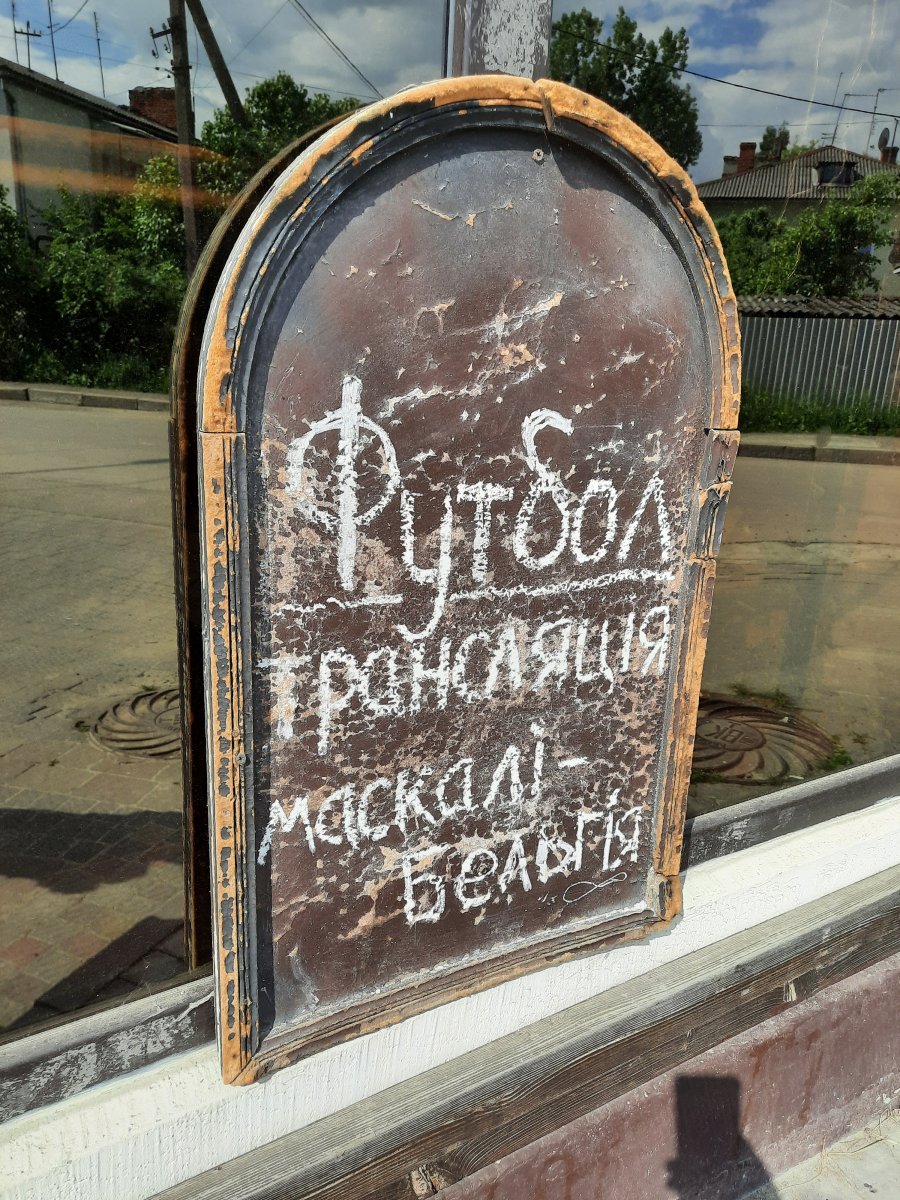 Футбол
трансляція
маскалі-
Бельгія